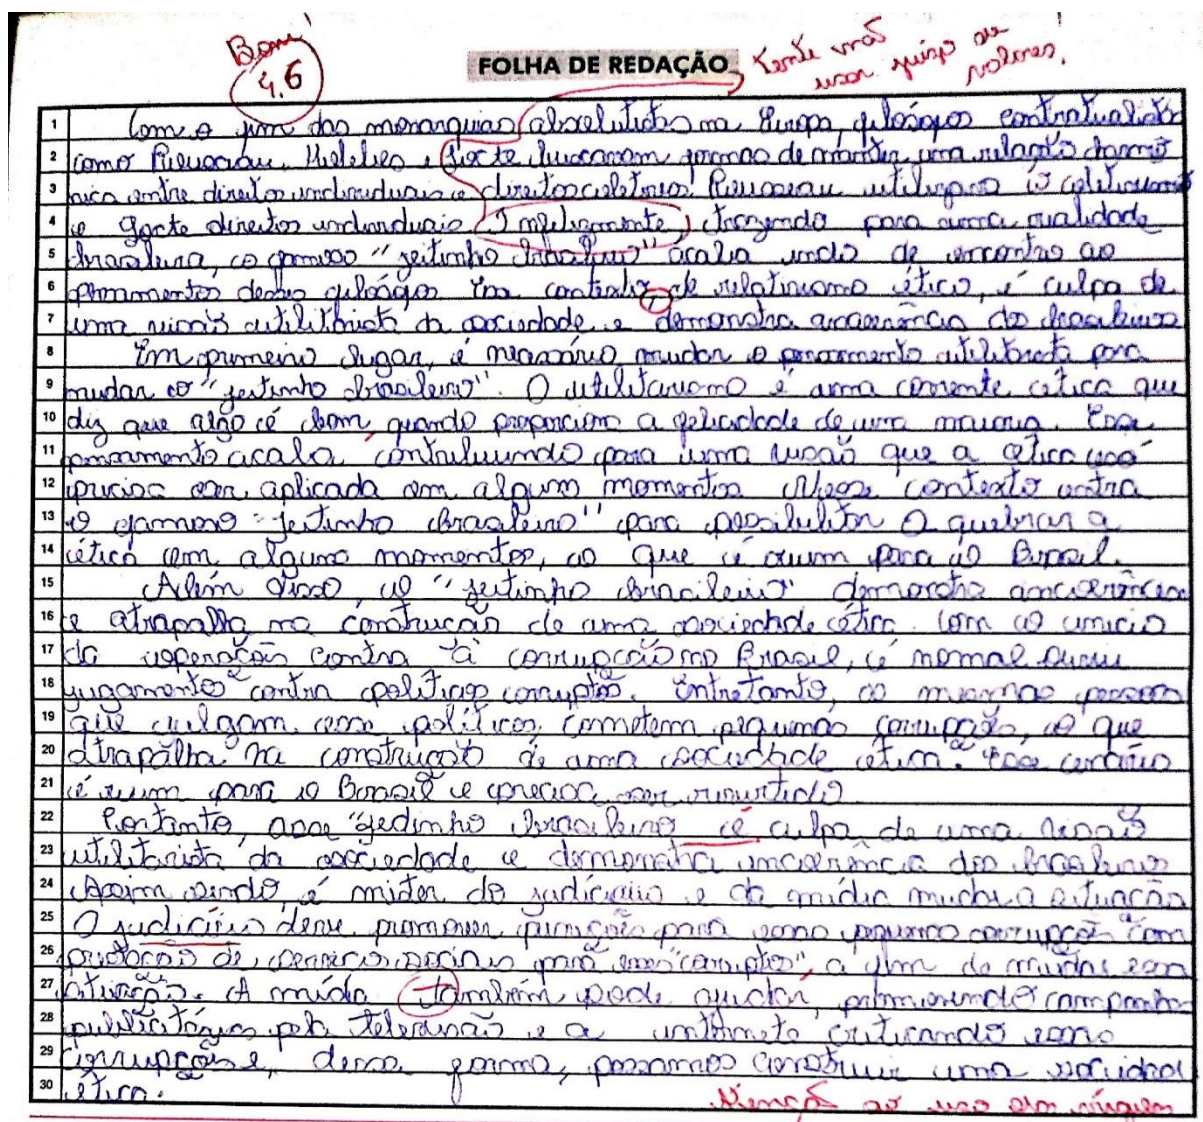 Bom!
4.6
FOLHA DE REDAÇÃO
Tente não
usar juízo de
valores.
1 Com o fim das monarquias absolutistas na Europa, filósofos contratualistas
2 como Rousseau, Hobbes e Locke buscavam formas de manter uma relação harmô
3 nica entre direitos individuais e direitos coletivos. Rousseau
4 e Locke direitos individuais. Infelizmente, trazendo para uma realidade
5 brasileira, o famoso "jeitinho brasileiro" acaba indo de encontro ao
6 pensamentos desses filósofos. Em contexto de relativismo ético, é culpa de
7 uma visão utilitarista da sociedade e demonstra incoerência do brasileiro
8 Em primeiro lugar, é necessário mudar o pensamento utilitarista para
9 mudar o "jeitinho brasileiro". O utilitarismo é uma corrente ética que
10 diz que algo é bom quando proporciona a felicidade de uma maioria. Esse
11 pensamento acaba contribuindo para uma visão que a ética não
12 precisa ser aplicada em alguns momentos. Nesse contexto entra
13 o famoso "jeitinho brasileiro" para possibilitar o quebrar a
14 ética em alguns momentos, o que é ruim para o Brasil.
15 Além disso, o "jeitinho brasileiro" demonstra incoerência
16 e atrapalha na construção de uma sociedade ética. Com o início
17 da operações contra à corrupção no Brasil, é normal ouvir
18 jugamentos contra políticos corruptos. Entretanto, as mesmas pessoas
19 que julgam esses políticos, cometem pequenas corrupções, o que
20 atrapalha na construção de uma sociedade ética. Esse cenário
21 é ruim para o Brasil e precisa ser revertido
22 Portanto, esse "jedinho brasileiro é culpa de uma visão
23 utilitarista da sociedade e demonstra incoerência dos brasileiros
24 Assim sendo, é mister do judiciário e da mídia mudar a situação
25 O judiciário deve promover punições para essas pequenas corrupções com
26 prestação de serviços sociais para esses "corruptos", a fim de mudar essa
27 situação. A mídia também pode ajudar, promovendo campanhas
28 publicitárias pela televisão e a internete criticando essas
29 corrupções e, dessa forma, possamos construir uma sociedad
30 ética.
Atenção ao uso em